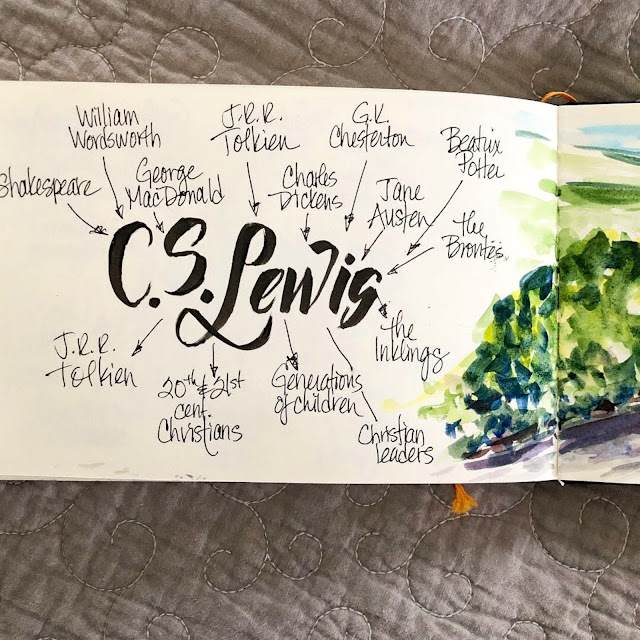 William
Wordsworth
J.R.R.
Tolkien
G.K.
Chesterton
Beatrix
Potter
Shakespeare
George
MacDonald
Charles
Dickens
Jane
Austen
the
Brontës
C.S. Lewis
J.R.R.
Tolkien
20th & 21st
cent.
Christians
Generations
of children
Christian
leaders
the
Inklings